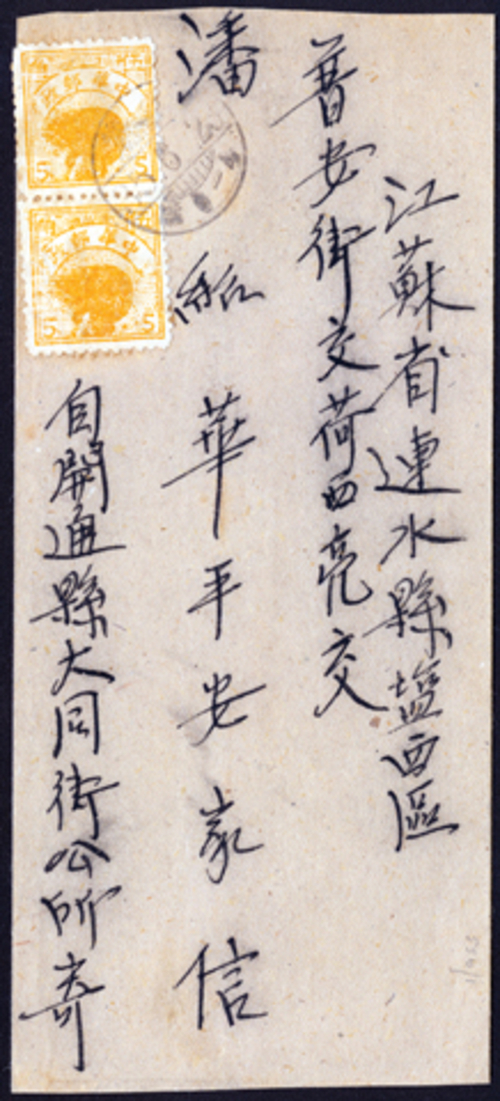 江蘇省連水縣塩西區
普安街交荷西亮交
潘紹華平安家信
自開通縣大同街公所寄
中華郵政
5 5
中華郵政
5 5